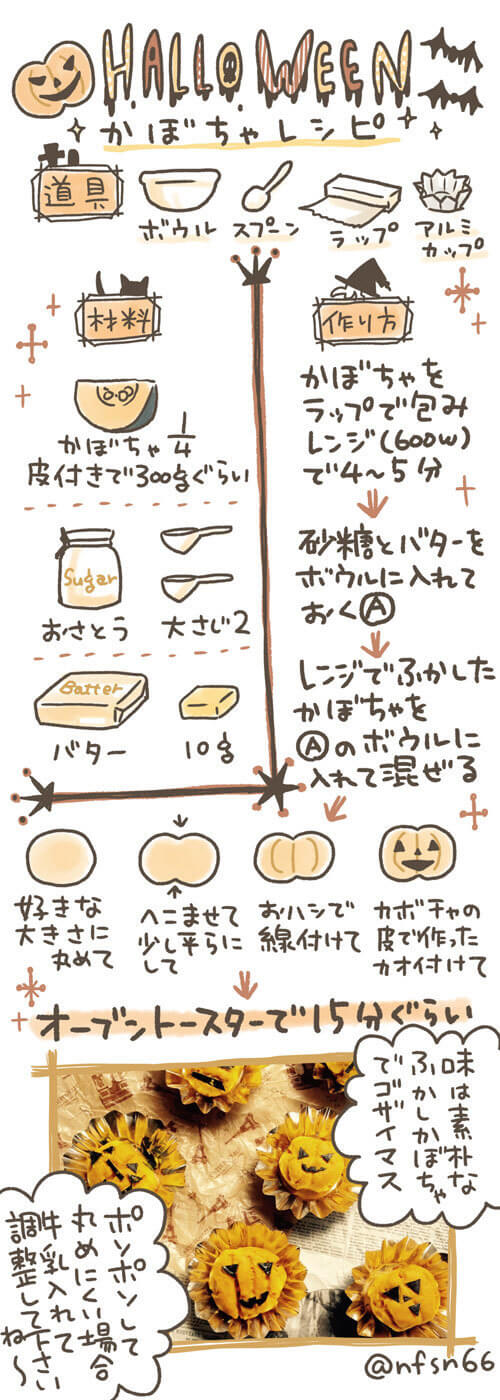 HALLOWEEN
かぼちゃレシピ
道具
ボウル
スプーン
ラップ
アルミ
カップ
材料
かぼちゃ1/4
皮付きで300gぐらい
Sugar
おさとう
大さじ2
Batter
バター
10g
作り方
かぼちゃを
ラップで包み
レンジ(600w)
で4~5分
砂糖とバターを
ボウルに入れて
おくⒶ
レンジでふかした
かぼちゃを
Ⓐのボウルに
入れて混ぜる
好きな
大きさに
丸めて
へこませて
少し平らに
して
おハシで
線付けて
カボチャの
皮で作った
カオ付けて
オーブントースターで15分ぐらい
味は素朴な
ふかしかぼちゃ
でゴザイマス
ポソポソして
丸めにくい場合
牛乳入れて
調整して下さい
ね〜
@nfsn66